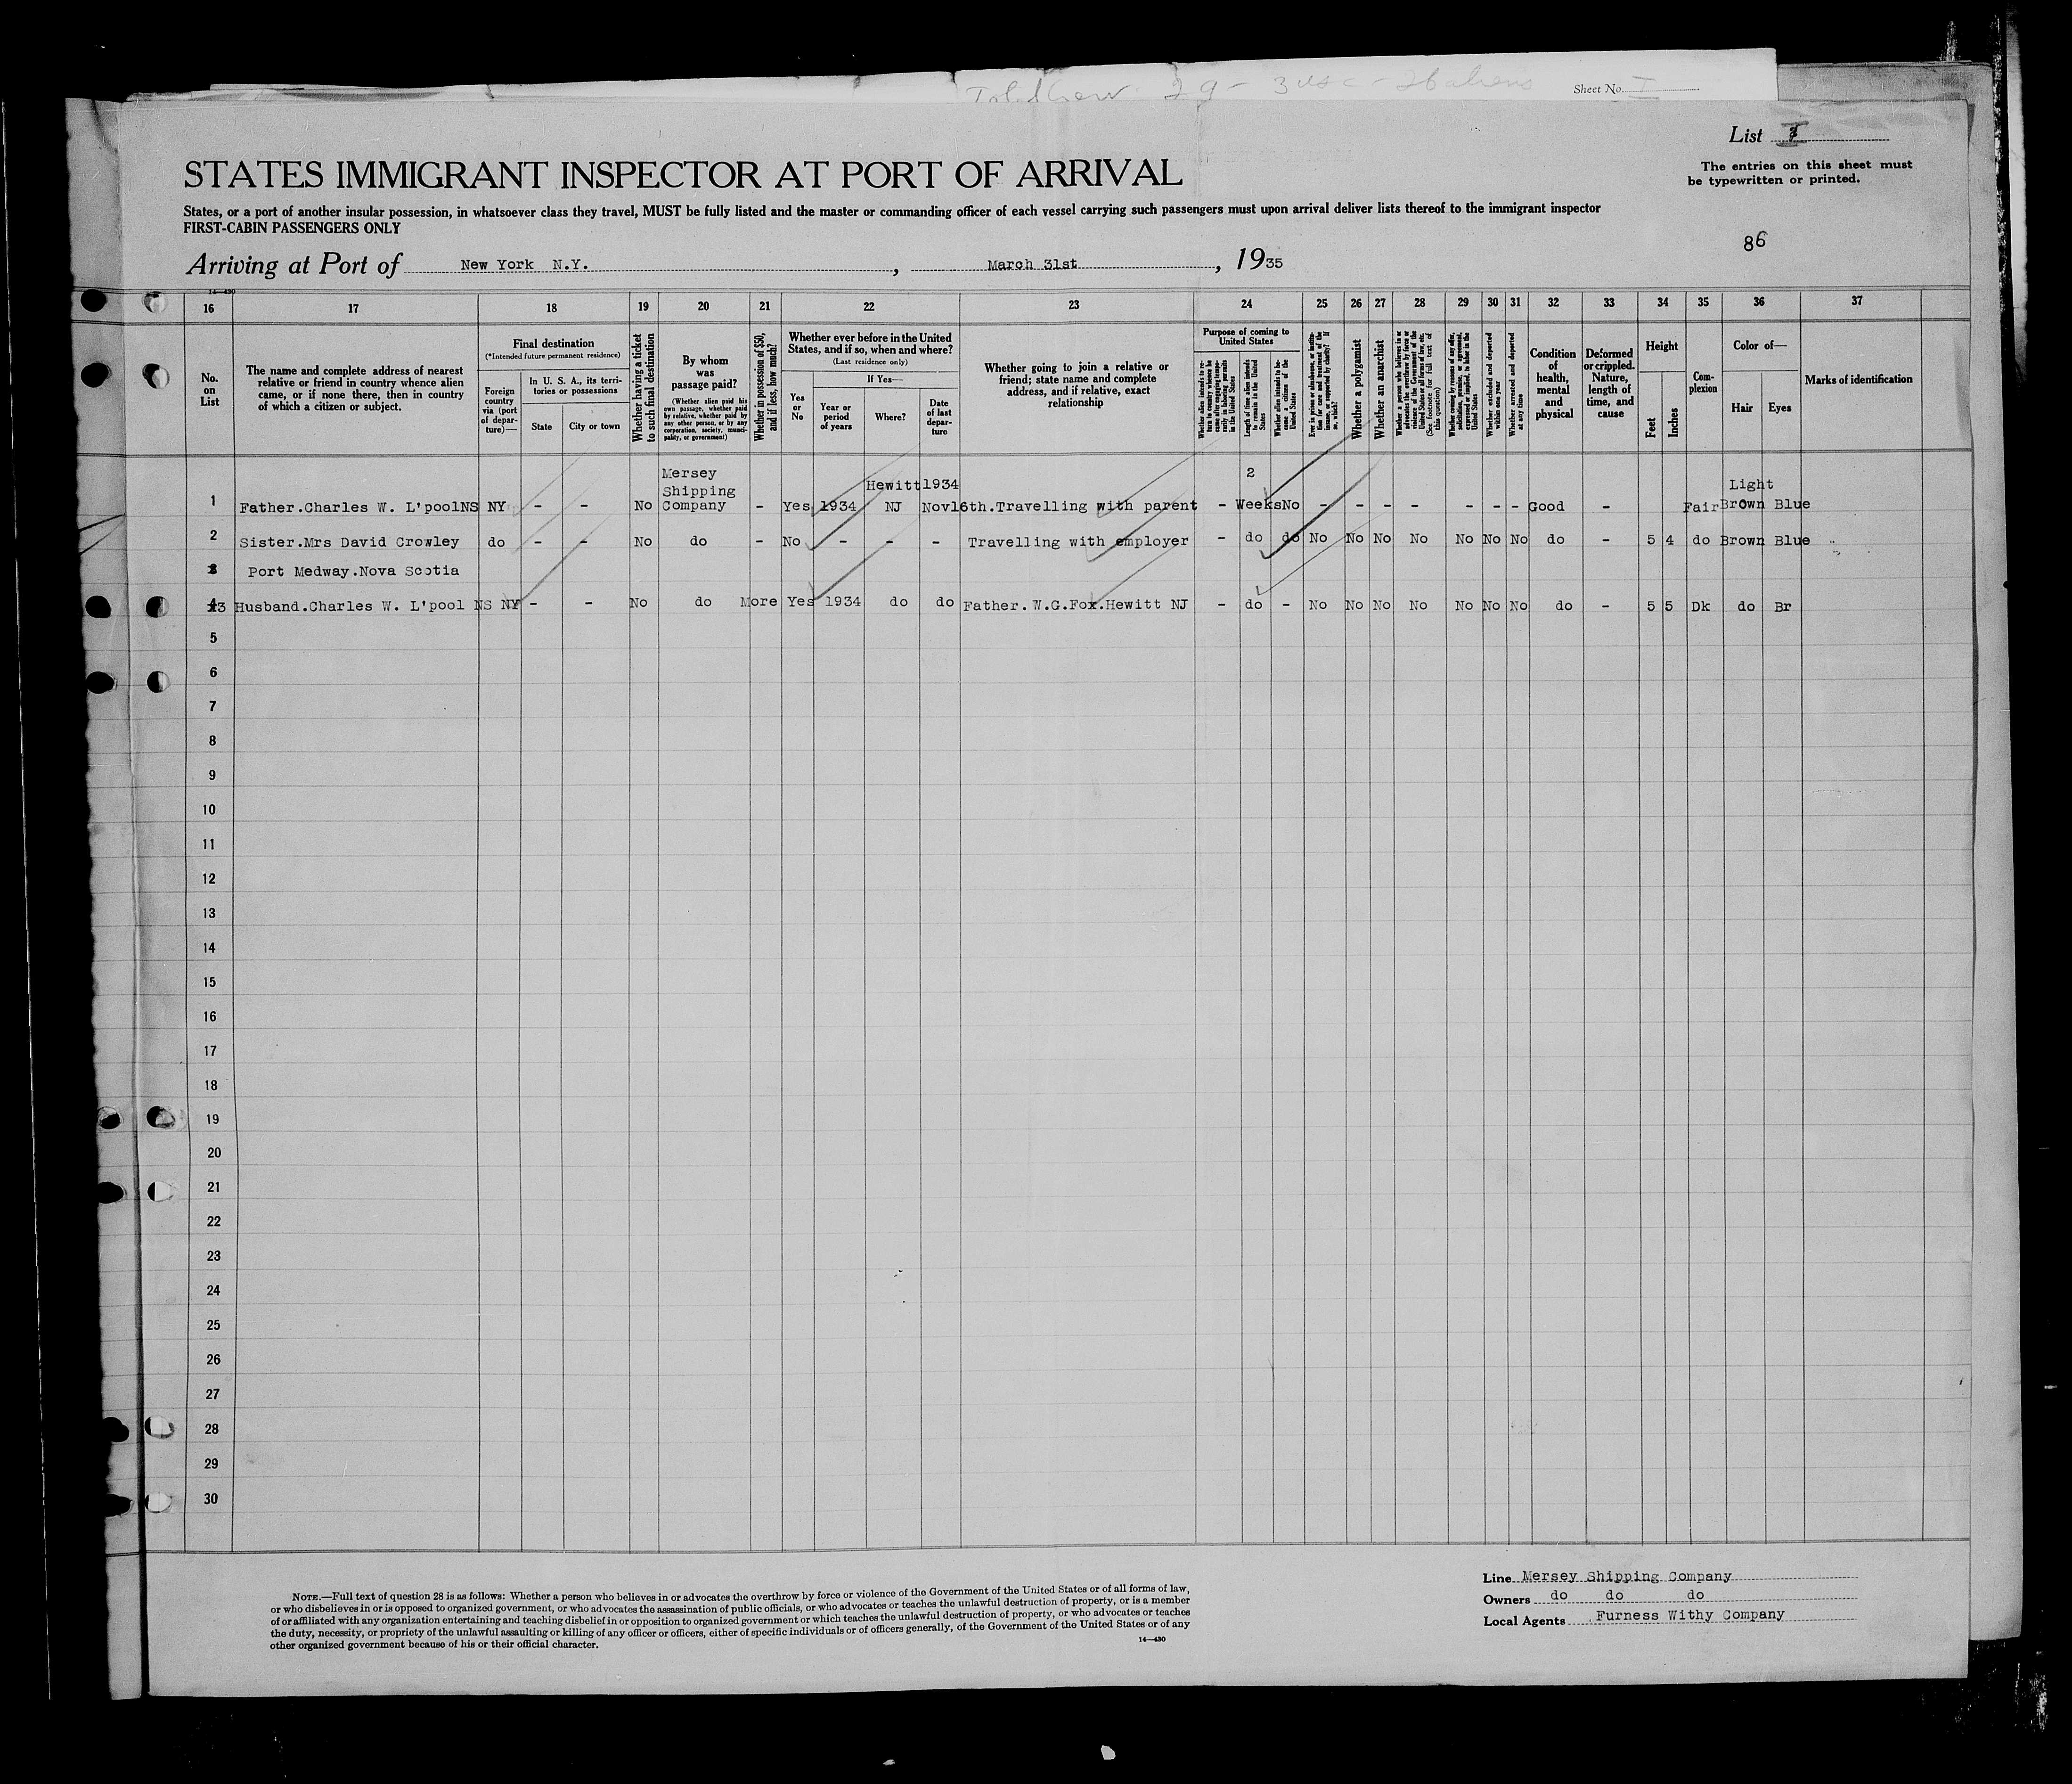 29 - 3 usc - 26 aliens
Sheet No. I
List I
STATES IMMIGRANT INSPECTOR AT PORT OF ARRIVAL
The entries on this sheet must
be typewritten or printed.
States, or a port of another insular possession, in whatsoever class they travel, MUST be fully listed and the master or commanding officer of each vessel carrying such passengers must upon arrival deliver lists thereof to the immigrant inspector
FIRST-CABIN PASSENGERS ONLY
86
Arriving at Port of New York N.Y. , March 31st , 1935
14—430
16 17 18 19 20 21 22 23 24 25 26 27 28 29 30 31 32 33 34 35 36 37
No. on List
The name and complete address of nearest relative or friend in country whence alien came, or if none there, then in country of which a citizen or subject.
Final destination
(*Intended future permanent residence)
Foreign country via (port of departure)—
In U. S. A., its territories or possessions
State
City or town
Whether having a ticket to such final destination
By whom was passage paid?
(Whether alien paid his own passage, whether paid by relative, whether paid by any other person, or by any corporation, society, municipality, or government)
Whether in possession of $50, and if less, how much?
Whether ever before in the United States, and if so, when and where?
(Last residence only)
Yes or No
If Yes—
Year or period of years
Where?
Date of last departure
Whether going to join a relative or friend; state name and complete address, and if relative, exact relationship
Purpose of coming to United States
Whether alien intends to return to country whence he came after engaging temporarily in laboring pursuits in the United States
Length of time alien intends to remain in the United States
Whether alien intends to become a citizen of the United States
Ever in prison or almshouse, or institution for care and treatment of the insane, or supported by charity? If so, which?
Whether a polygamist
Whether an anarchist
Whether a person who believes in or advocates the overthrow by force or violence of the Government of the United States or all forms of law, etc. (See footnote for full text of this question)
Whether coming by reasons of any offer, solicitation, promise, or agreement, expressed or implied, to labor in the United States
Whether excluded and deported within one year
Whether arrested and deported at any time
Condition of health, mental and physical
Deformed or crippled. Nature, length of time, and cause
Height
Feet
Inches
Complexion
Color of—
Hair
Eyes
Marks of identification
1 Father.Charles W. L'poolNS NY - - No Mersey Shipping Company - Yes 1934 Hewitt NJ 1934 Nov16th.Travelling with parent - 2 WeeksNo - - - - - - - Good - Fair Light Brown Blue
2 Sister.Mrs David Crowley do - - No do - No - - - Travelling with employer - do do No No No No No No No do - 5 4 do Brown Blue
3 Port Medway.Nova Scotia
3 Husband.Charles W. L'pool NS NY - - No do More Yes 1934 do do Father.W.G.Fox.Hewitt NJ - do - No No No No No No No do - 5 5 Dk do Br
5
6
7
8
9
10
11
12
13
14
15
16
17
18
19
20
21
22
23
24
25
26
27
28
29
30
NOTE.—Full text of question 28 is as follows: Whether a person who believes in or advocates the overthrow by force or violence of the Government of the United States or of all forms of law,
or who disbelieves in or is opposed to organized government, or who advocates the assassination of public officials, or who advocates or teaches the unlawful destruction of property, or is a member
of or affiliated with any organization entertaining and teaching disbelief in or opposition to organized government or which teaches the unlawful destruction of property, or who advocates or teaches
the duty, necessity, or propriety of the unlawful assaulting or killing of any officer or officers, either of specific individuals or of officers generally, of the Government of the United States or of any
other organized government because of his or their official character.
14—430
Line Mersey Shipping Company
Owners do do do
Local Agents Furness Withy Company